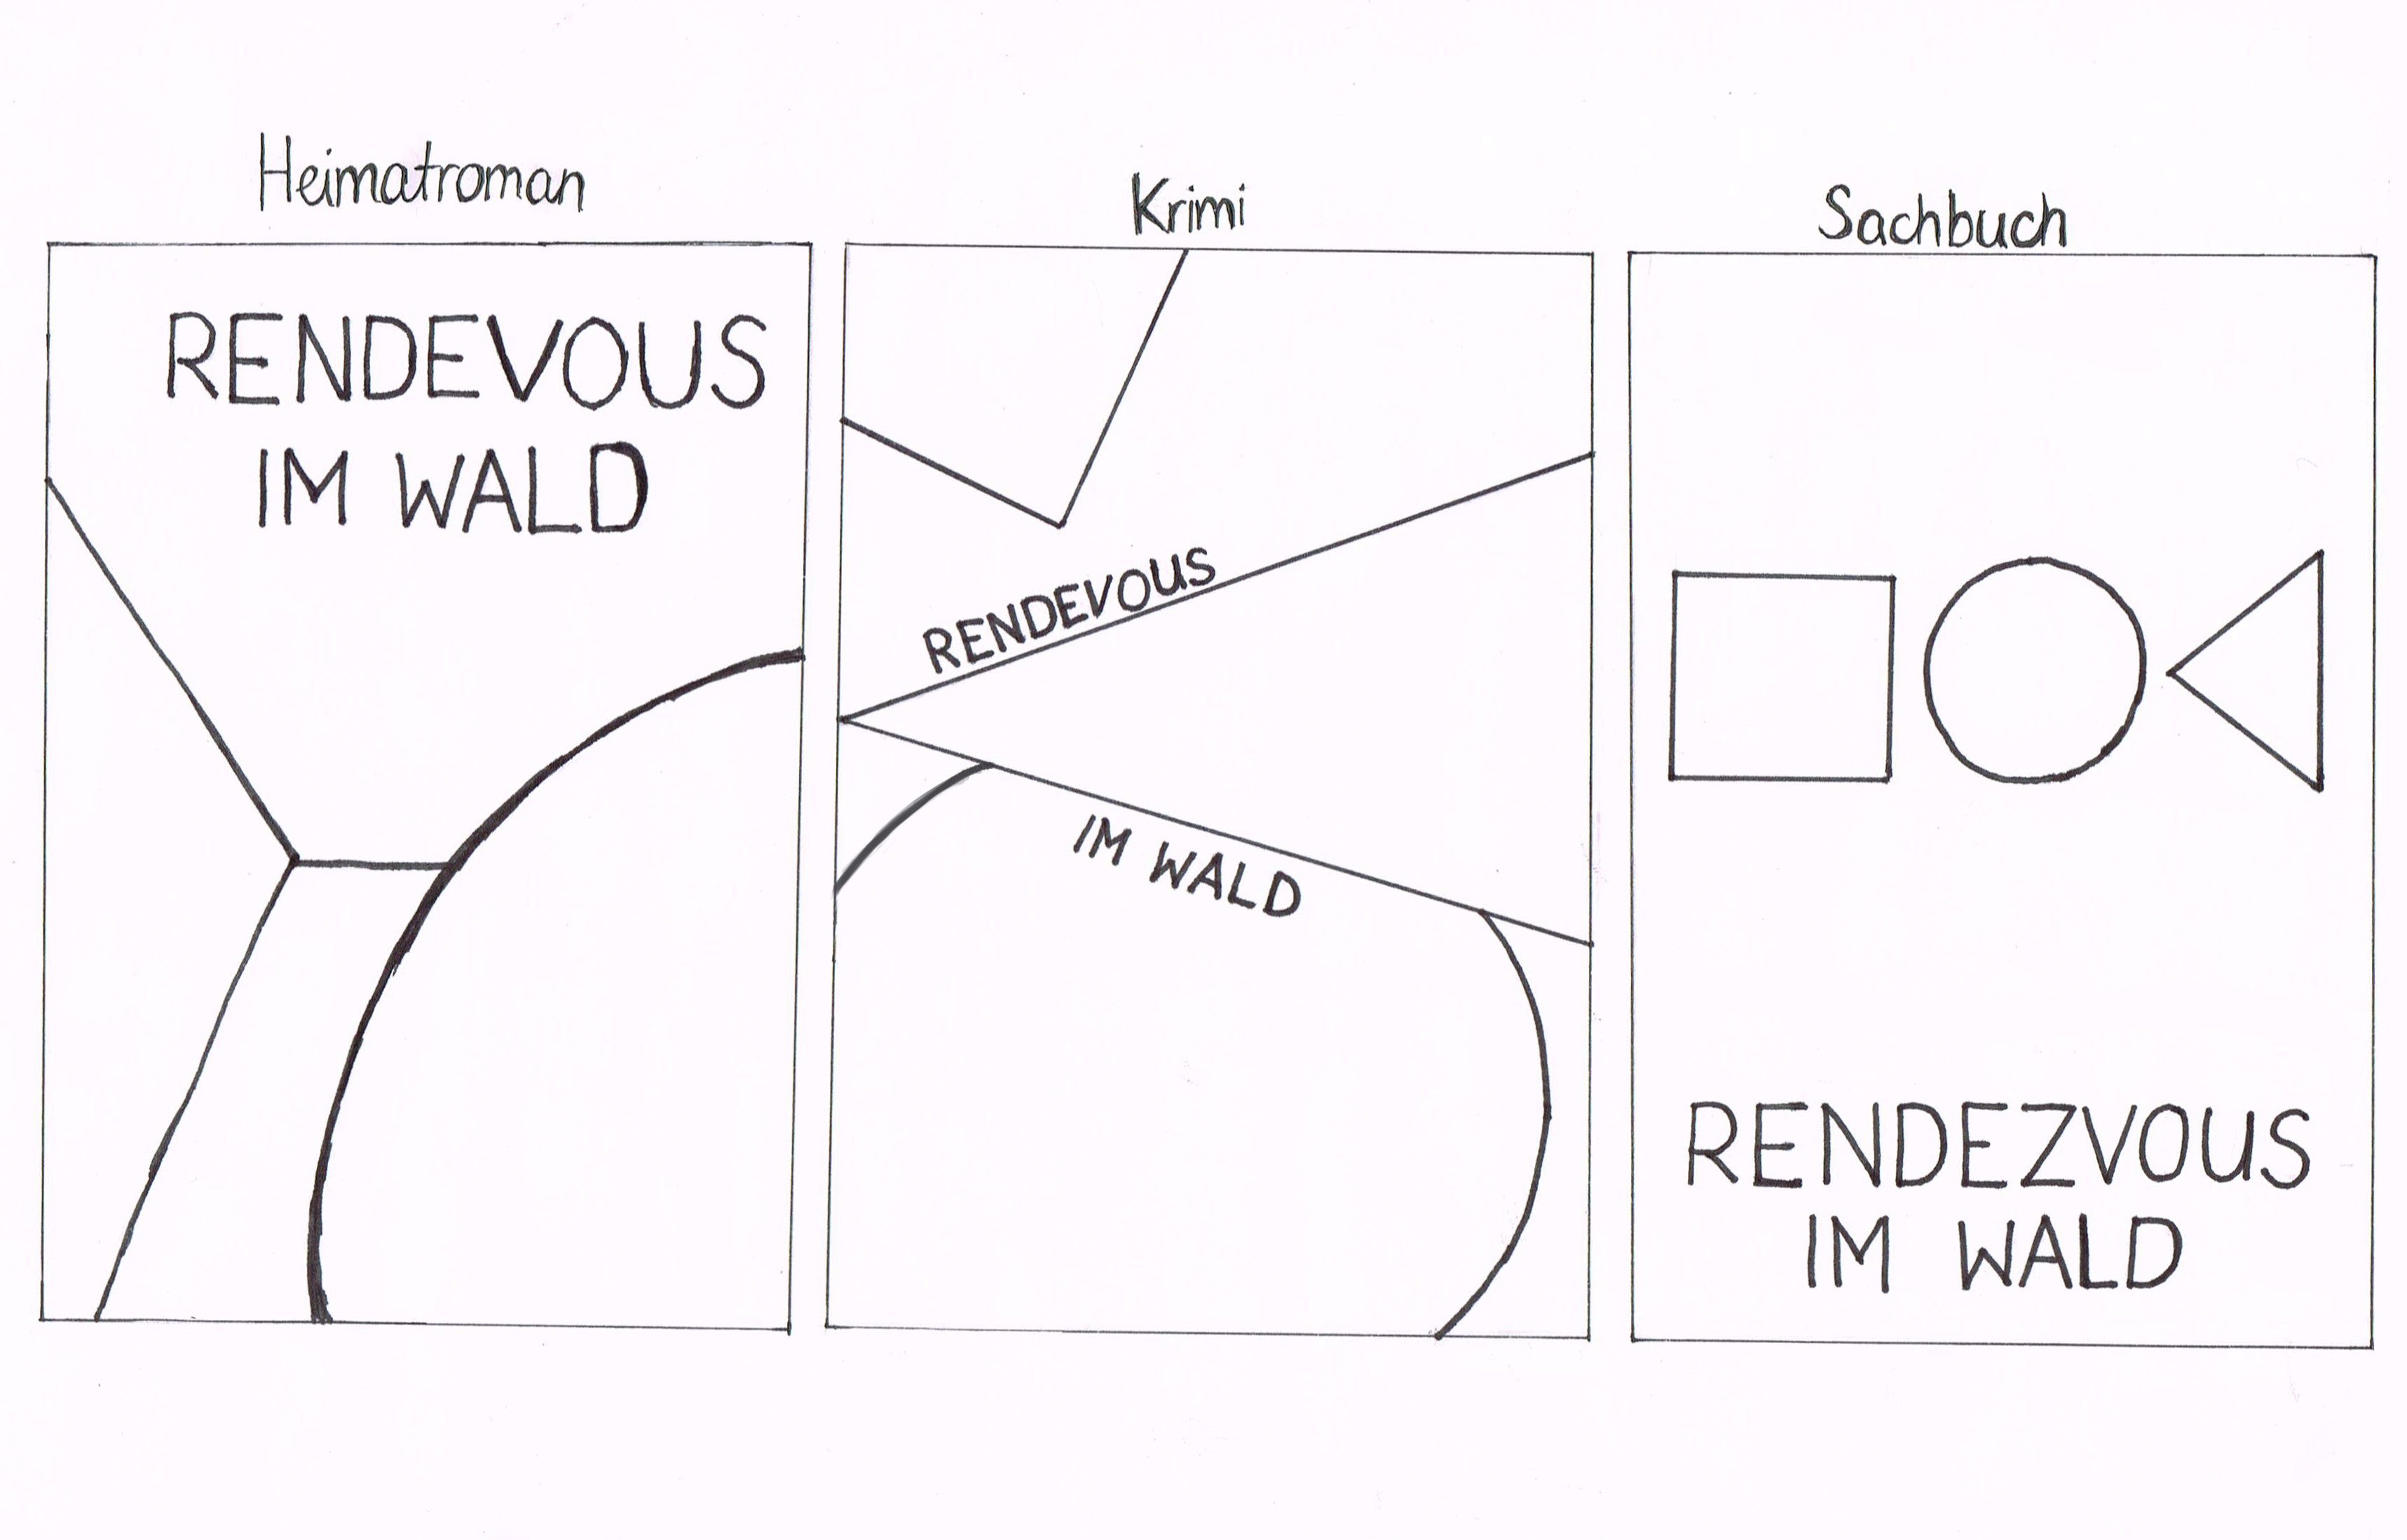 Heimatroman
RENDEVOUS
IM WALD
Krimi
RENDEVOUS
IM WALD
Sachbuch
RENDEZVOUS
IM WALD